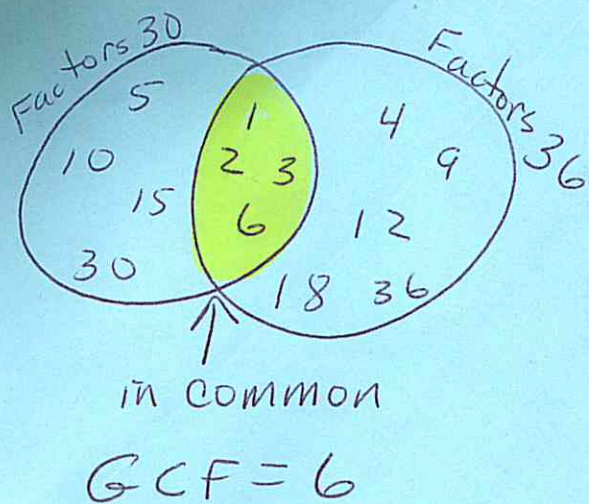 Factors 30
Factors 36
5
10
15
30
1
2 3
6
4
9
12
18 36
in common
GCF = 6